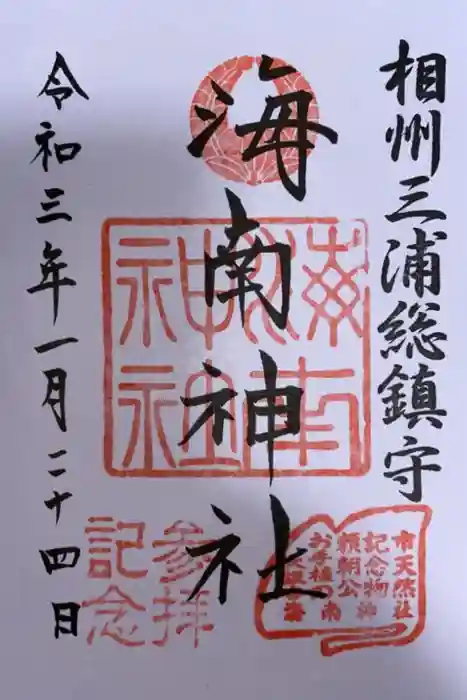 相州三浦総鎮守
海南神社
令和三年一月二十四日
海南神社
参拝
記念
市天然
記念物
頼朝公
お手植の